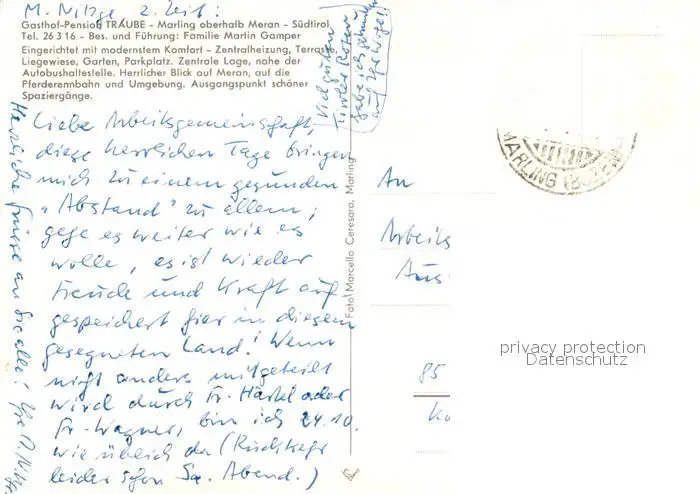 M. Nitzge z. Zeit:
Gasthof-Pension TRAUBE - Marling oberhalb Meran - Südtirol
Tel. 26 3 16 - Bes. und Führung: Familie Martin Gamper
Eingerichtet mit modernstem Komfort - Zentralheizung, Terrasse,
Liegewiese, Garten, Parkplatz. Zentrale Lage, nahe der
Autobushaltestelle. Herrlicher Blick auf Meran, auf die
Pferderennbahn und Umgebung. Ausgangspunkt schöner
Spaziergänge.
Viel guten
Tiroler Roten
habe ich
auf Ihr Wohl
Liebe Arbeitsgemeinschaft,
diese herrlichen Tage bringen
mich zu einem gesunden
„Abstand" zu allem;
gehe es weiter wie es
wolle, es ist wieder
Freude und Kraft auf
gespeichert hier in diesem
gesegneten Land! Wenn
nicht anders mitgeteilt
wird durch Fr. Härtel oder
Fr. Wagner, bin ich 24.10.
wie üblich da (Rückkehr
leider schon Sa. Abend.)
Herzliche Grüsse an Sie alle! Ihre
Foto Marcello Ceresara, Marling
MARLING (BOZEN)
An
Arbeits
Aus
85
privacy protection
Datenschutz